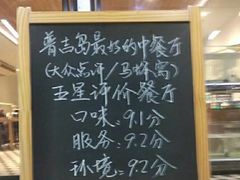 普吉岛最好的中餐厅
(大众点评/马蜂窝)
五星评价餐厅
口味:9.1分
服务:9.2分
环境:9.2分